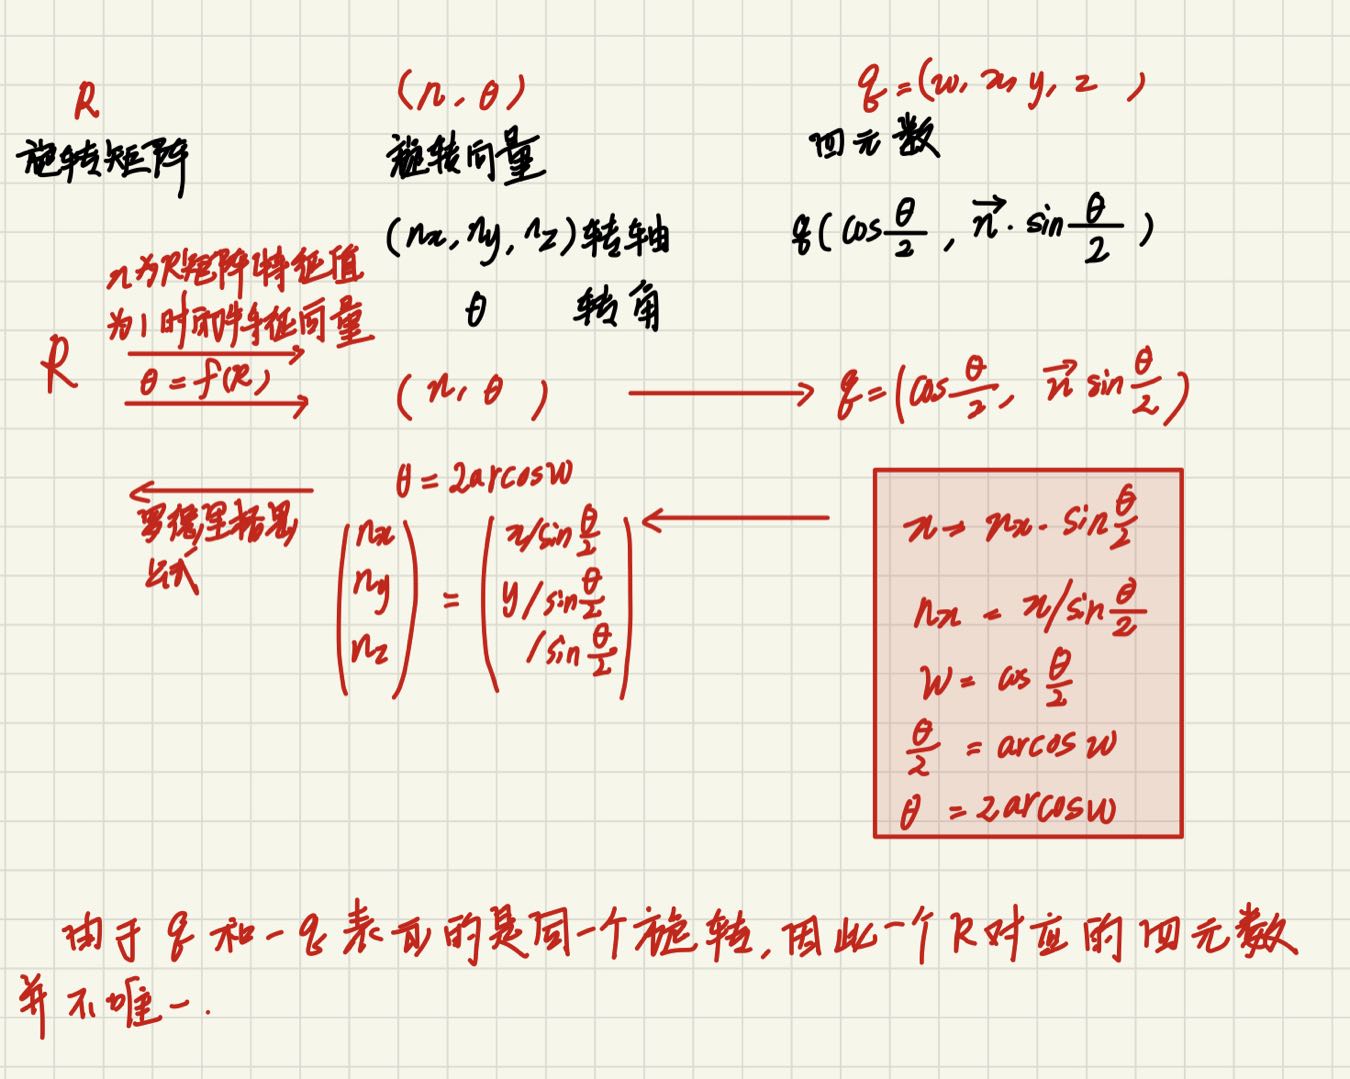 R
(n, θ)
q=(w, x, y, z )
旋转矩阵
旋转向量
四元数
(nx, ny, nz)转轴
q(cos θ/2 , n⃗· sin θ/2 )
θ 转角
n为R矩阵特征值
为1时的特征向量
R
θ=f(R)
(n, θ )
q=(cos θ/2, n⃗ sin θ/2)
θ=2arcosw
罗德里格思
公式
(nx ny nz) = (x/sin θ/2 y/sin θ/2 /sin θ/2)
x = nx · sin θ/2
nx = x/sin θ/2
w= cos θ/2
θ/2 = arcos w
θ =2arcosw
由于q和-q表示的是同一个旋转,因此一个R对应的四元数
并不唯一.